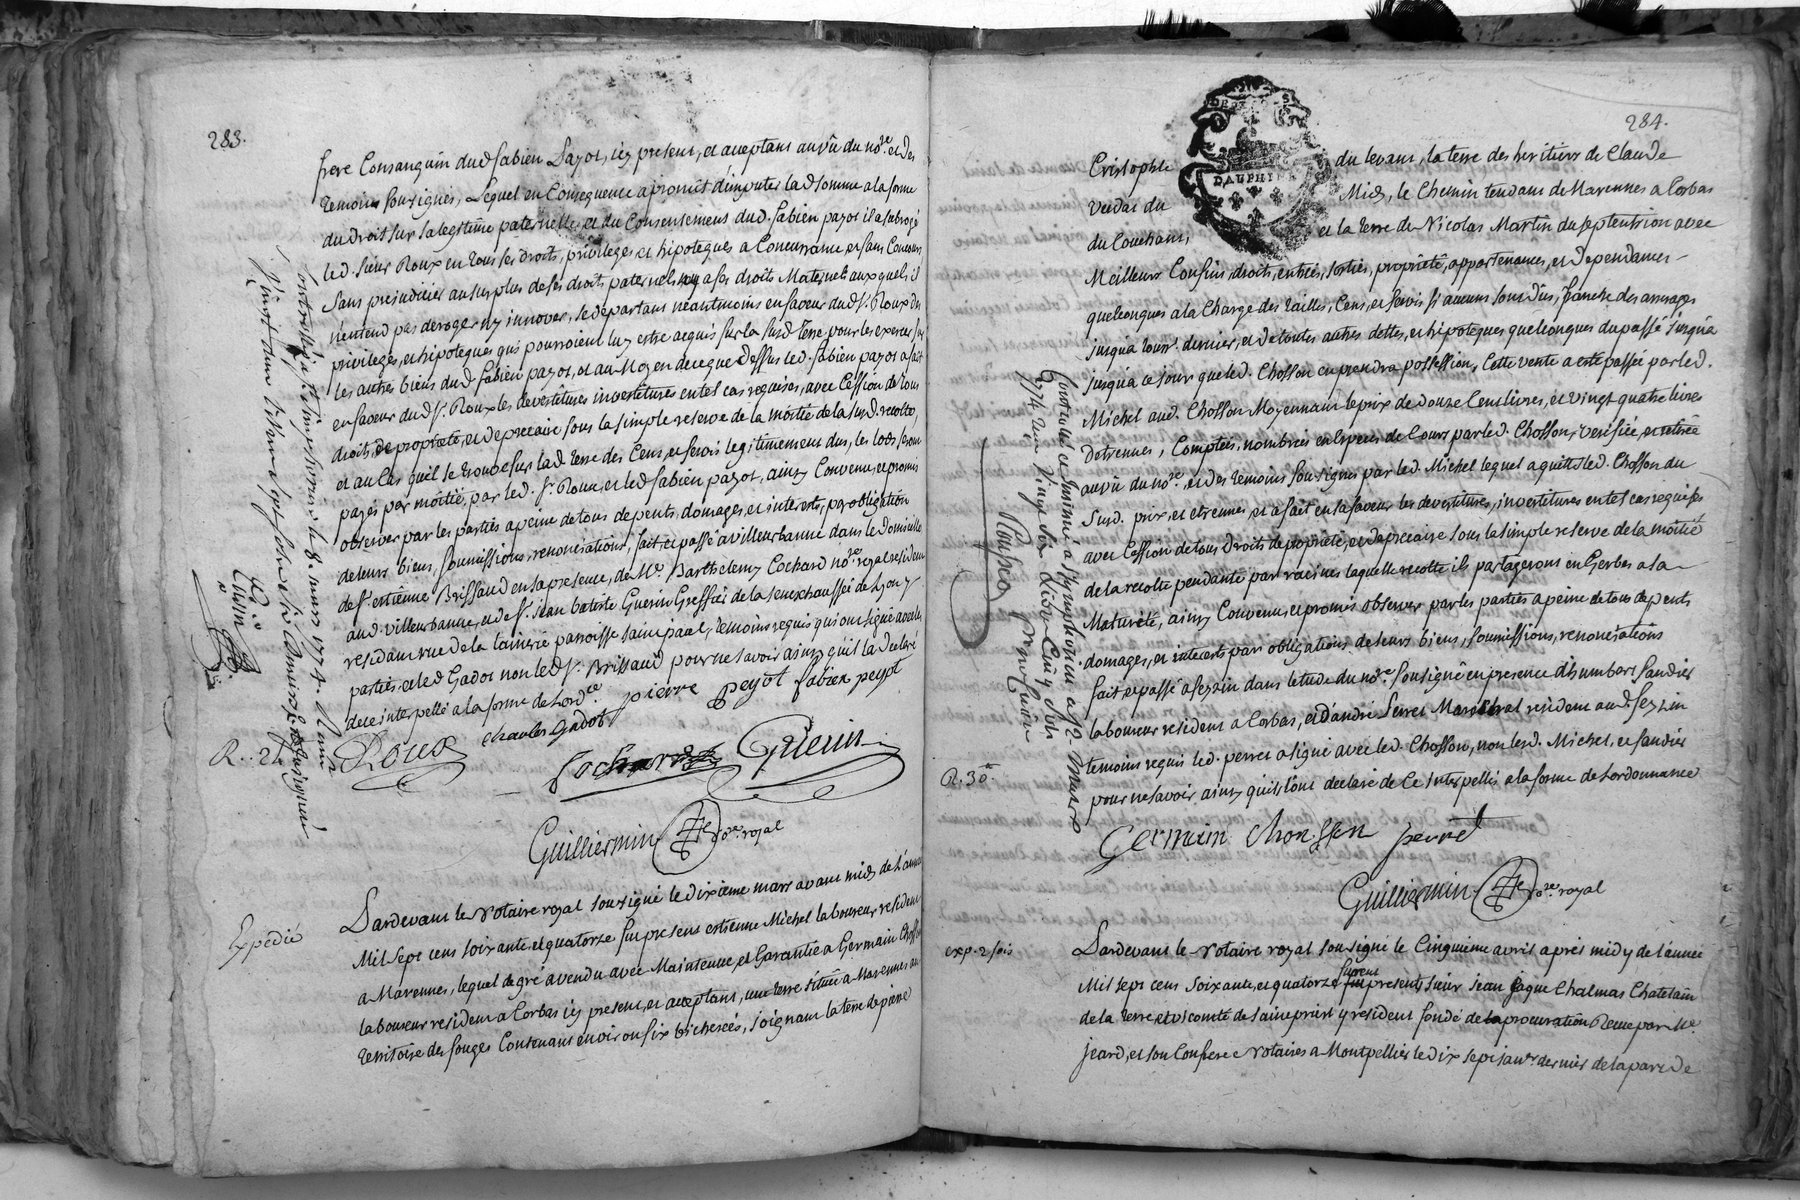 283.
frere Consanguin dud fabien Payot, icy present, et acceptant au vû du no.re et des
temoins soussignés, Lequel en Consequence a promit d'imputer lad somme a la forme
du droit sur sa legitime paternelle, et du Consentement dud. fabien payot il a subrogé
led. sieur Roux en tous ses droits, privileges et hipoteques a Concurrance, et sans Concours
sans prejudicier au surplus de ses droits paternels ny a ses droits Maternels auxquels il
n'entend pas deroger ny innover, se departant neantmoins en faveur dud sr. Roux des
privileges, et hipoteques qui pourroient luy estre acquis sur la susd. terre pour les exercer sur
les autres biens dud fabien payot, et au Moyen de ce que dessus led. fabien payot a fait
en faveur dud sr. Roux les devestitures investitures en tel cas requises, avec Cession de tous
droits de propriété, et de precaire sous la simple reserve de la moitié de la susd. recolte,
et au Cas qu'il se trouve sur lad terre des Cens, et servis legitimement dus, les lods seront
payés par moitié, par led. sr. Roux, et led fabien payot, ainsy Convenu, et promis
observer par les parties a peine de tous depents, domages, et interets, par obligation
de leurs biens, soumissions, renonciations, fait, et passé a villeurbanne dans le domicille
de sr. estienne Brissaud en sa presence, de Me. Barthelemy Cochard no.re royal resident
aud. villeurbanne, et de sr. jean batiste Guerin Greffier de la senechaussée de Lyon y
residant rue de la lainerie parroisse saint paul, temoins requis qui ont signé avec les
parties, et led Gadot non led sr. Brissaud pour ne savoir ainsy qu'il l'a declaré
de ce interpellé a la forme de Lord.ce
pierre peyot fabien peyot
charles Gadot
Roux
Cochard
Guerin
R. 24
Guilliermin no.re royal
Expédié
Pardevant le Notaire royal soussigné le dixieme mars avant midy de L'année
Mil sept cent soixante et quatorze fut present estienne Michel laboureur resident
a Marennes, lequel de gré a vendu avec Maintenue, et Garantie a Germain Chosson
laboureur resident a Corbas icy present, et acceptant, une terre située a Marennes au
territoire des fouges Contenant environ six bicherées, joignant la terre de pierre
284.
DAUPHINÉ
Cristophle du levant, la terre des heritiers de Claude
Verdat du Midy, le Chemin tendant de Marennes a Corbas
du Couchant, et la terre de Nicolas Martin du septentrion avec
Meilleurs Confins, droits, entrées, sorties, propriété, appartenances, et dependances
quelconques a la Charge des tailles, Cens, et servis si aucuns sont dus, franche des arrerages
jusqu'a cejourd. dernier, et de toutes autres dettes, et hipoteques quelconques du passé jusqu'a
jusqu'a ce jour que led. Chosson en prendra possession, Cette vente a esté passée par led.
Michel aud. Chosson Moyennant le prix de douze Cent livres, et vingt quatre livres
detrennes, Comptées, nombrées en Especes de Cours par led. Chosson, verifiée et retirée
au vû du no.re et des temoins soussignés par led. Michel lequel a quitté led. Chosson du
susd. prix, et etrennes, et a fait en sa faveur les devestitures, investitures en tel cas requises
avec Cession de tous droits de propriété, et de precaire sous la simple reserve de la moitié
de la recolte pendante par racines laquelle recolte ils partageront en Gerbes a la
Maturité, ainsy Convenu, et promis observer par les parties a peine de tous depents
domages, et interets par obligations de leurs biens, soumissions, renonciations
fait et passé a feyzin dans letude du no.re soussigné en presence d'humbert sandier
laboureur resident a Corbas, et d'andré Perret Marechal resident aud. feyzin
temoins requis led. perret a signé avec led. Chosson, non led. Michel, et sandier
pour ne savoir ainsy qu'ils l'ont declaré de Ce interpellés a la forme de Lordonnance
R. 30
Germain Chousson perret
Guilliermin no.re royal
exp. 2 fois
Pardevant le Notaire royal soussigné le Cinquieme avril après midy de l'année
Mil sept cent soixante, et quatorze furent presents sieur jean jaque Chalmas Chatelain
de la terre et vicomté de saint priest y resident fondé de la procuration Reçue par Me.
jeard, et son Confrere Notaires a Montpellier le dix sept janv.er dernier de la part de